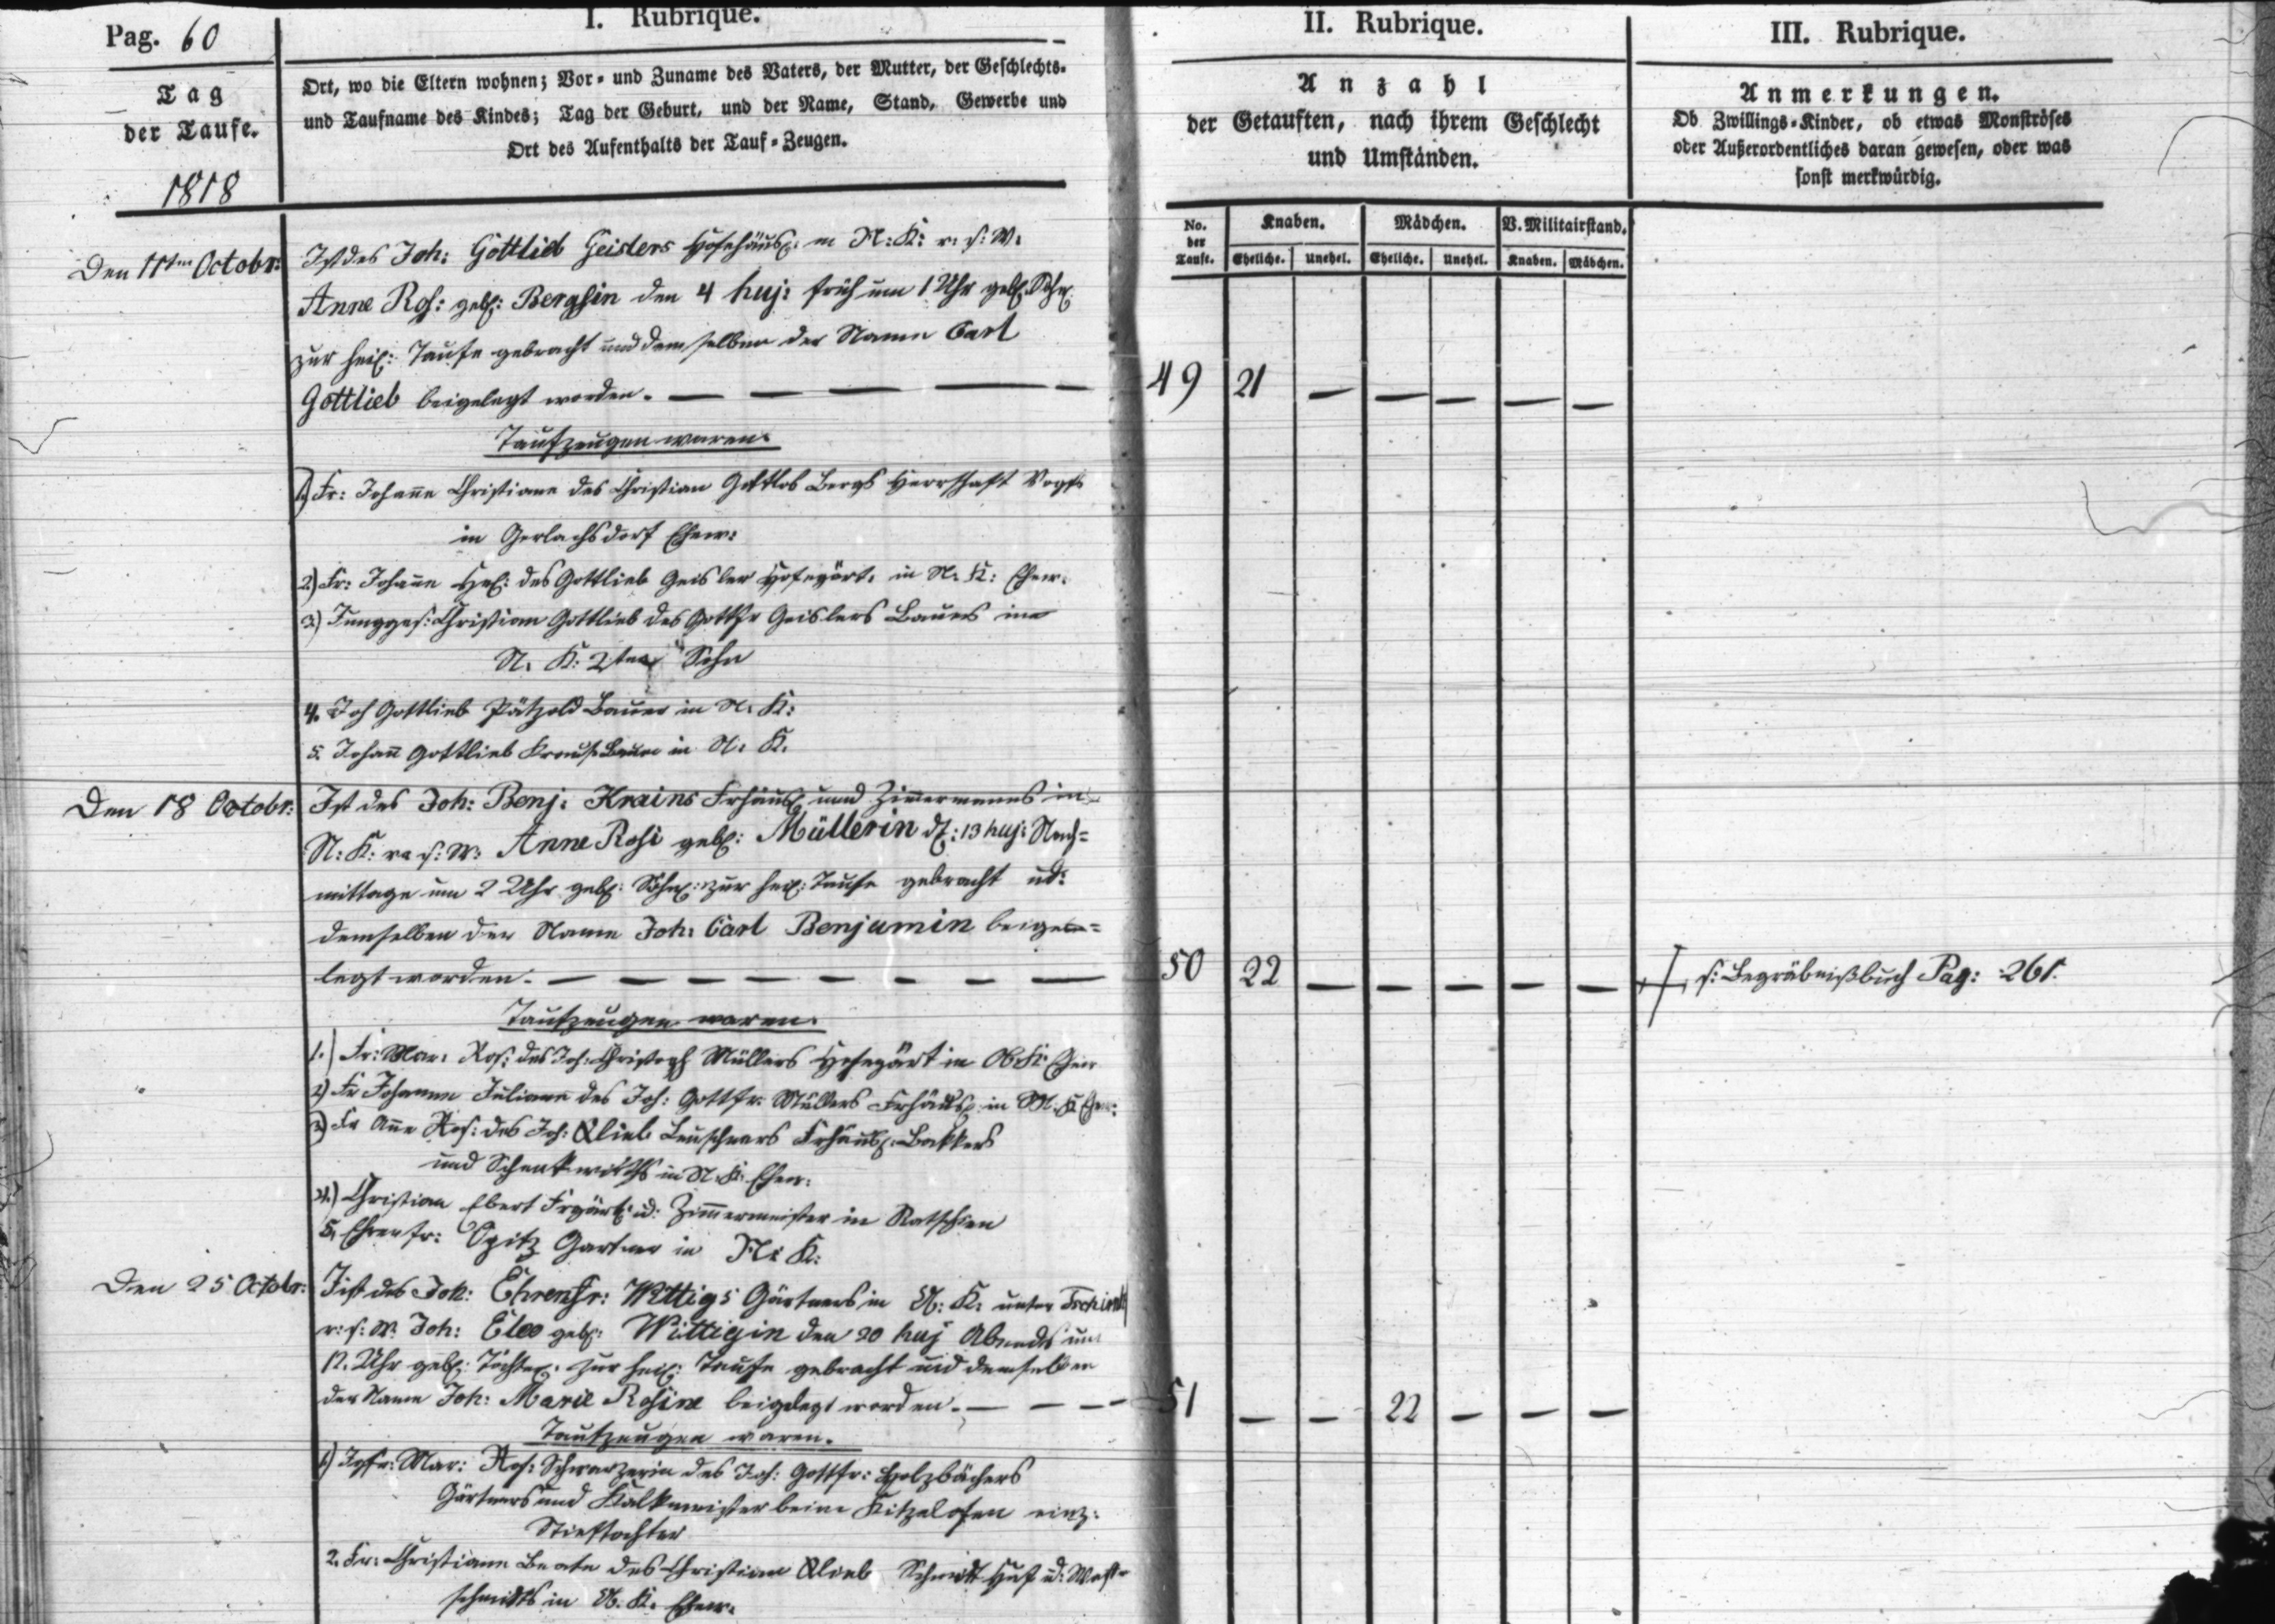 Pag. 60
I. Rubrique.
II. Rubrique.
III. Rubrique.
Tag
der Taufe.
1818
Ort, wo die Eltern wohnen; Vor- und Zuname des Vaters, der Mutter, der Geschlechts-
und Taufname des Kindes; Tag der Geburt, und der Name, Stand, Gewerbe und
Ort des Aufenthalts der Tauf-Zeugen.
Anzahl
der Getauften, nach ihrem Geschlecht
und Umständen.
Anmerkungen.
Ob Zwillings-Kinder, ob etwas Monströses
oder Außerordentliches daran gewesen, oder was
sonst merkwürdig.
No. der Taufe.
Knaben.
Mädchen.
V. Militairstand.
Eheliche.
Unehel.
Eheliche.
Unehel.
Knaben.
Mädchen.
Den 11ten Octobr:
Ist des Joh: Gottlieb Geislers Hofehäusl: in N: K: v. s: W:
Anne Ros: geb: Bergsin den 4 huj: früh um 1 Uhr geb: Söhnl:
zur heil: Taufe gebracht und demselben der Name Carl
Gottlieb beigelegt worden. — — — — —
49 21 — — — — —
Taufzeugen waren.
1.) Fr: Johanne Christiane des Christian Gottlob Bergs Herrschaft Vogts
in Gerlachsdorf Ehew:
2.) Fr: Johanne Hel: des Gottlieb Geisler Hofegärt. in N. K: Ehew.
3.) Junggs: Christian Gottlieb des Gottfr Geislers Bauers in
N. K: 2ter Sohn
4. Joh Gottlieb Pätzold Bauer in N. K:
5. Johann Gottlieb Bauer in N. K.
Den 18 Octobr:
Ist des Joh: Benj: Krains Frhäusl und Zimmermanns in
N: K: v. s: W: Anne Rosi geb: Müllerin d: 13 huj: Nach=
mittage um 2 Uhr geb: Söhnl: zur heil: Taufe gebracht ud:
demselben der Name Joh: Carl Benjamin beige=
legt worden. — — — — — — — —
50 22 — — — — —
s: Begräbnißbuch Pag: 261.
Taufzeugen waren.
1.) Fr: Mar: Ros: des Joh: Christoph Müllers Hofegärt in Ob K: Ehew
2) Fr Johanne Juliane des Joh: Gottfr. Müllers Frhäusl: in N. K Ehew:
3) Fr Anne Ros: des Joh: Glieb Leuschners Frhäusl: Bäckers
und Schenkwirths in N. K: Ehew:
4.) Christian Ebert Frgärt: ud: Zimmermeister in Ratschen
5. Ehrenfr: Opitz Gartner in N: K:
Den 25 Octobr:
Ist des Joh: Ehrenfr: Wittigs Gärtners in N: K: unter
v: s: W: Joh: Eleo geb: Wittigin den 20 huj Abends um
12. Uhr geb: Töchterl: zur heil: Taufe gebracht und demselben
der Name Joh: Marie Rosine beigelegt worden. — — —
51 — — 22 — — —
Taufzeugen waren.
1) Jgfr: Mar: Ros: Schwarzerin des Joh: Gottfr: Holzbächers
Gärtners und Kalkmeister beim Kitzelofen einz:
Stieftochter
2. Fr: Christiane Beate des Christian Glieb Schmidt Huf ud:
schmidts in N. K. Ehew.